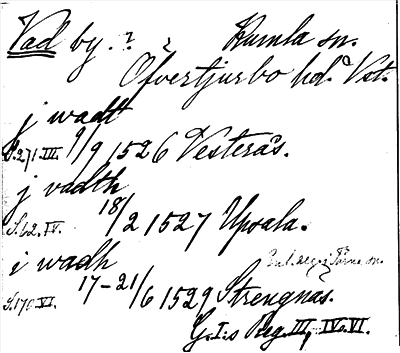 Vad by. ? Kumla sn.
Öfvertjurbo hd. Vst.
j wadt
S.271.III. 9/9 1526 Vesterås.
j vadth
S.62.IV. 18/2 1527 Upsala.
i wadh
S.170.VI. 17-21/6 1529 Strengnäs.
G.I:s Reg. III, IV o. VI.